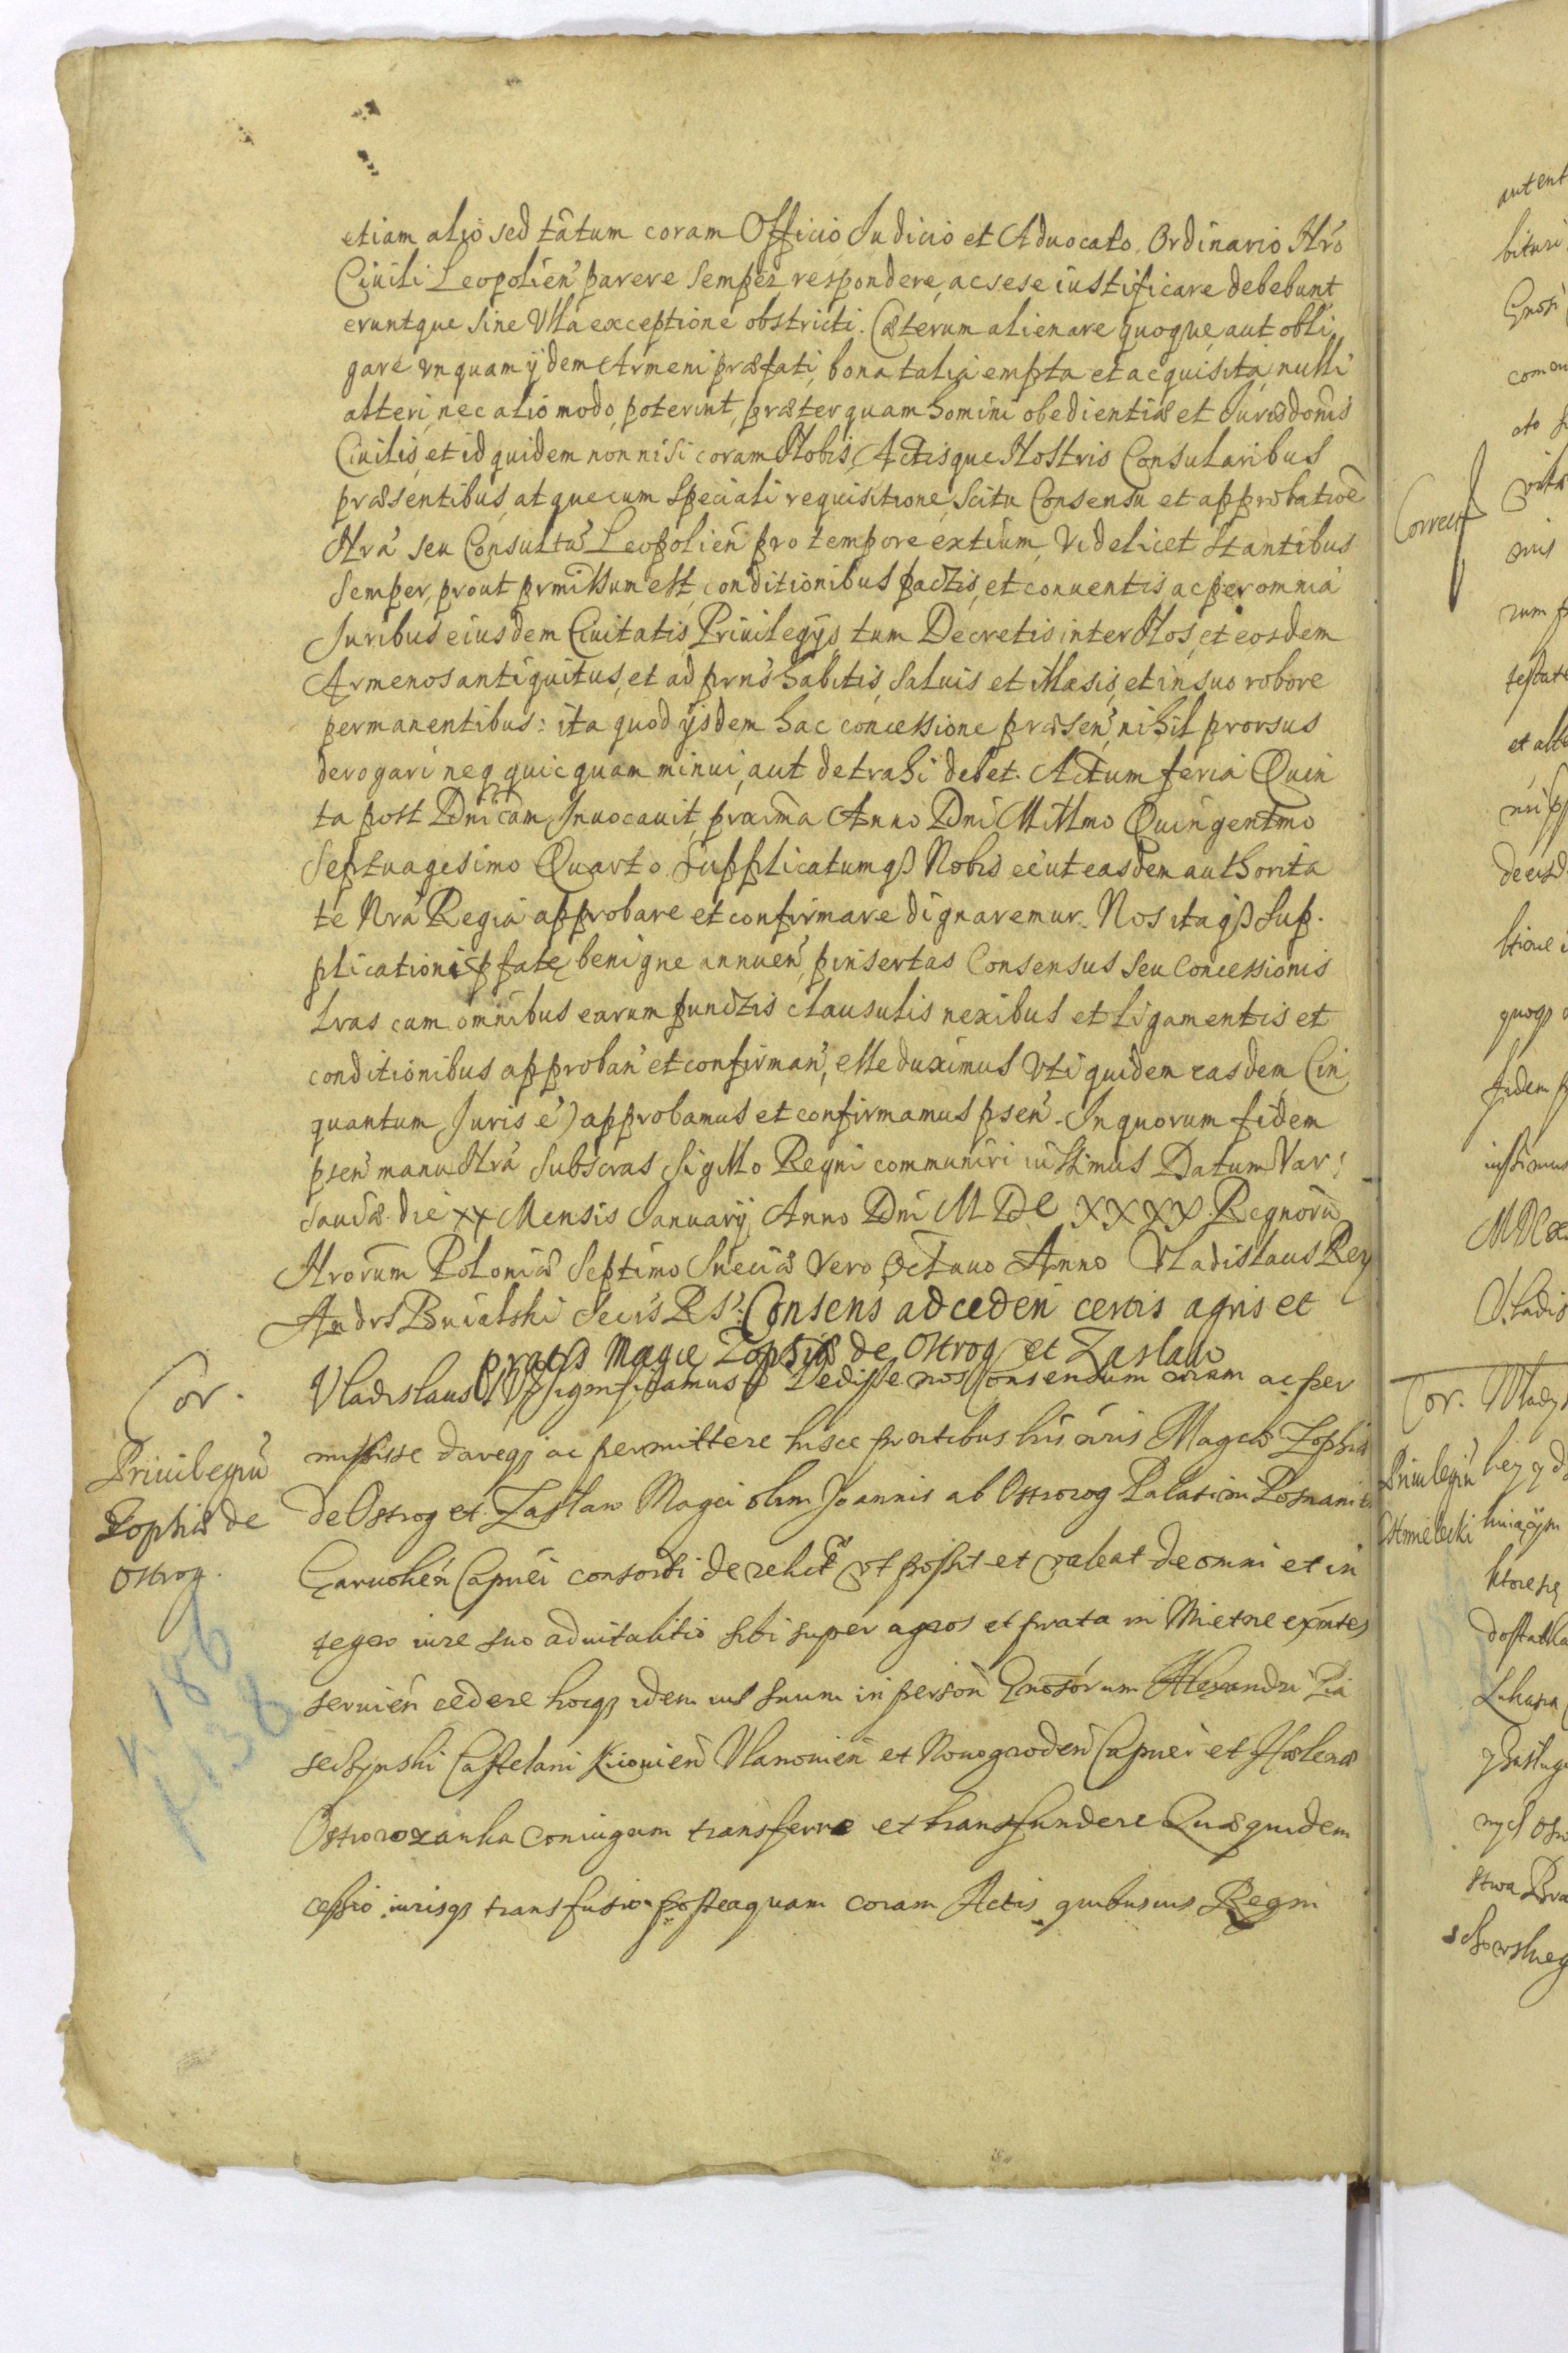 etiam alio sed tãtum coram Officio Judicio et Aduocato Ordinario Nrõ
Ciuili Leopolien̄ parere semper respondere, ac sese iustificare debebunt
eruntque sine Vlla exceptione obstricti. Cæterum alienare quoque aut obli
gare vnquam ijdem Armeni præfati, bona talia empta et acquisita, nulli
alteri, nec alio modo, poterint, præterquam homini obedientiæ et Jurisdoñis
Ciuilis, et id quidem non nisi coram Nobis, Actisque Nostris Consularibus
præsentibus, atque cum speciali requisitione, scitu Consensu et approbatioẽ
Nrã seu Consultũ Leopolien̄ pro tempore extiũm, Videlicet stantibus
semper, prout prmissum est, conditionibus pactis, et conuentis, ac per omnia
Juribus eiusdem Ciuitatis, Priuilegijs, tum Decretis, inter Nos, et eosdem
Armenos antiquitus, et ad prns̄ habitis, saluis et illæsis, et in suo robore
permanentibus: ita quod ijsdem hac concessione præsen̄, nihil prorsus
derogari neq quicquam minui, aut detrahi debet. Actum feria Quin
ta post Dnicam Inuocauit, proxima Anno Dni Millmo Quingentmo
Septuagesimo Quarto. Supplicatumqȝ Nobis e[st] ut easdem authorita
te Nrã Regia approbare et confirmare dignaremur. Nos itaqȝ Sup.
plicationi pfatę benigne annuen̄, pinsertas Consensus seu Concessionis
Lras cum omnibus earum punctis clausulis nexibus et ligamentis et
conditionibus approban̄ et confirman̄, esse duximus Vti quidem easdem (in
quantum Juris ẽ) approbamus et confirmamus psen̄. In quorum fidem
psen̄ manu Nrã Subscras Sigillo Regni communiri iussimus Datum Var
sauiæ die XX Mensis January Anno Dni M DC XXXX Regnorũ
Nrorũm Poloniæ Septimo Sueciæ Vero Octauo Anno Vladislaus Rex
Consens̄ ad ceden̄ certis agris et
pratis Magcæ Zophiæ de Ostrog et Zaslaw
Cor.
Priuilegiũ
Zophiæ de
Ostrog.
Vladislaus IV significamus Dedisse nos Consensum ac per
misisse dareqȝ ac permittere hisce pñtibus lris nris Magcæ Zophiæ
de Ostrog et Zaslaw Magci olim Joannis ab Ostrorog Palatini Posnanien̄
Garuolien̄ Capnei consorti derelictæ vt possit et valeat de omni et in
tegro iure suo aduitalitio sibi super agros et prata in Mietne exñtes
seruien̄ cedere hocqȝ idem ius suum in person̄ Gnosorum Alexandri Pia
seczynski Castelani Kiiouien̄ Vlanouien̄ et Nouogroden̄ Capnei et Hælenæ
Ostrorozanka coniugum transferre et transfundere Quæquidem
cessio iurisqȝ transfusio posteaquam coram Actis quibusuis Regni
Correct
Cor.
Priuilegiũ
Chmielecki